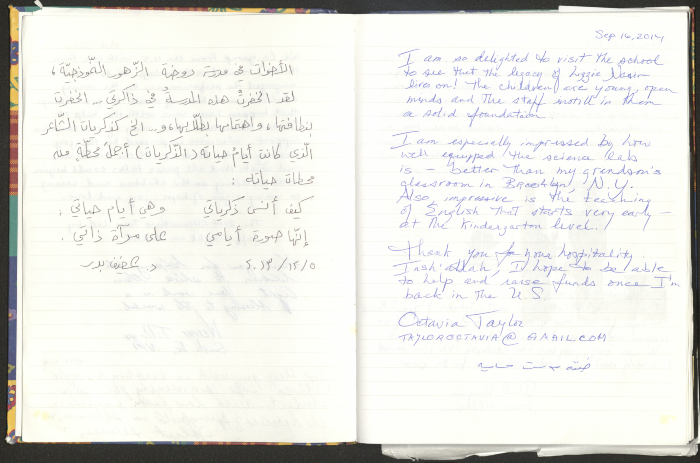 الأخوات في مدرسة روضة الزهور النموذجيّة،
لقد انحفرتْ هذه المدرسة في ذاكرتي .. انحفرت
بنظافتها، واهتمامها بطلّابها، و... الخ كذكريات الشّاعر
الّذي كانت أيامُ حياته (الذّكريات) أجملَ محطّةٍ من
محطات حياته :
كيف أنسى ذكرياتي وهي أيام حياتي ،
إنّها صورة أيامي على مرآة ذاتي .
٢٠١٣/١٢/٥ د. عفيف بدر
Sep 16, 2014
I am so delighted to visit the school
to see that the legacy of Lizzie Nasir
lives on! The children are young, open
minds and the staff instill in them
a solid foundation.
I am especially impressed by how
well equipped the science lab
is - better than my grandson's
classroom in Brooklyn, N.Y.
Also impressive is the teaching
of English that starts very early -
at the Kindergarten level.
Thank you for your hospitality.
Insh'allah, I hope to be able
to help and raise funds once I'm
back in the U S
Octavia Taylor
TAYLOROCTAVIA@GMAIL.COM